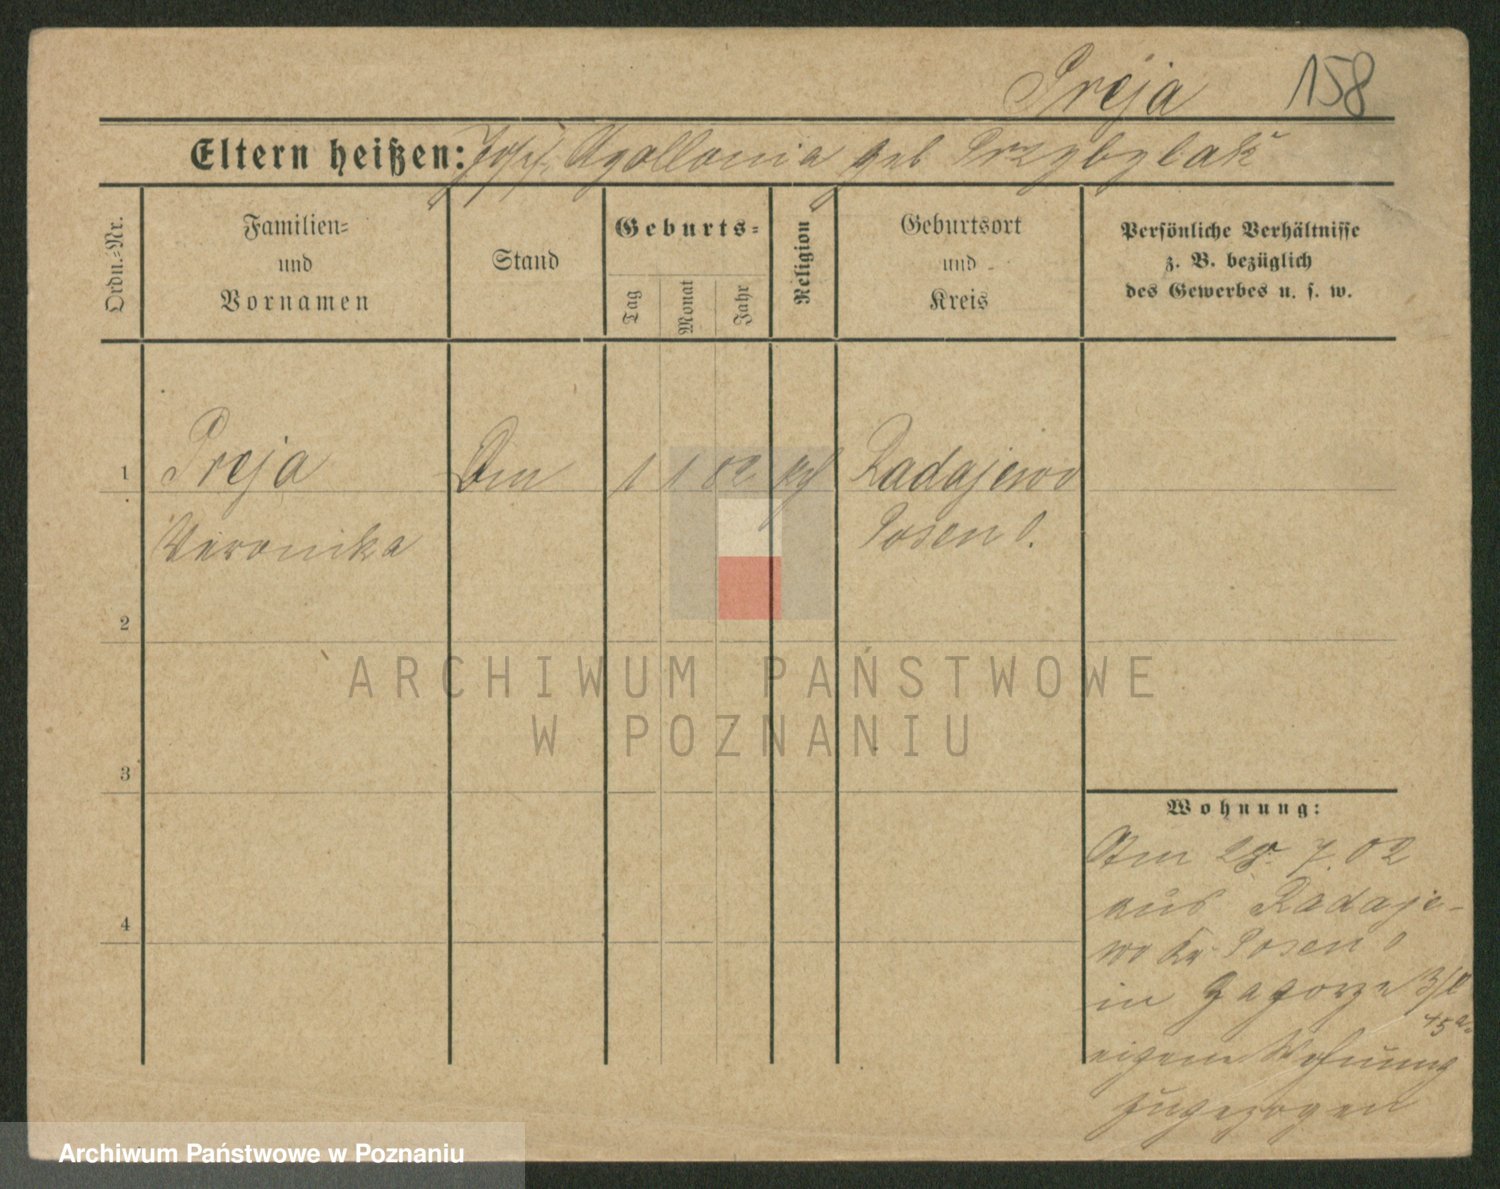 Preja 158
Eltern heißen: Josef, Apollonia geb Przybylak
Ordn.=Nr.
Familien=
und
Vornamen
Stand
Geburts=
Tag
Monat
Jahr
Religion
Geburtsort
und
Kreis
Persönliche Verhältnisse
z. B. bezüglich
des Gewerbes u. s. w.
1 Preja 1 1 02 Radajewo
Veronika Posen O.
2
3
4
Wohnung:
Am 28. 7. 02
aus Radaje-
wo Kr Posen O
in Zagorze 3/II
eigene Wohnung
zugezogen
ARCHIWUM PAŃSTWOWE
W POZNANIU
Archiwum Państwowe w Poznaniu